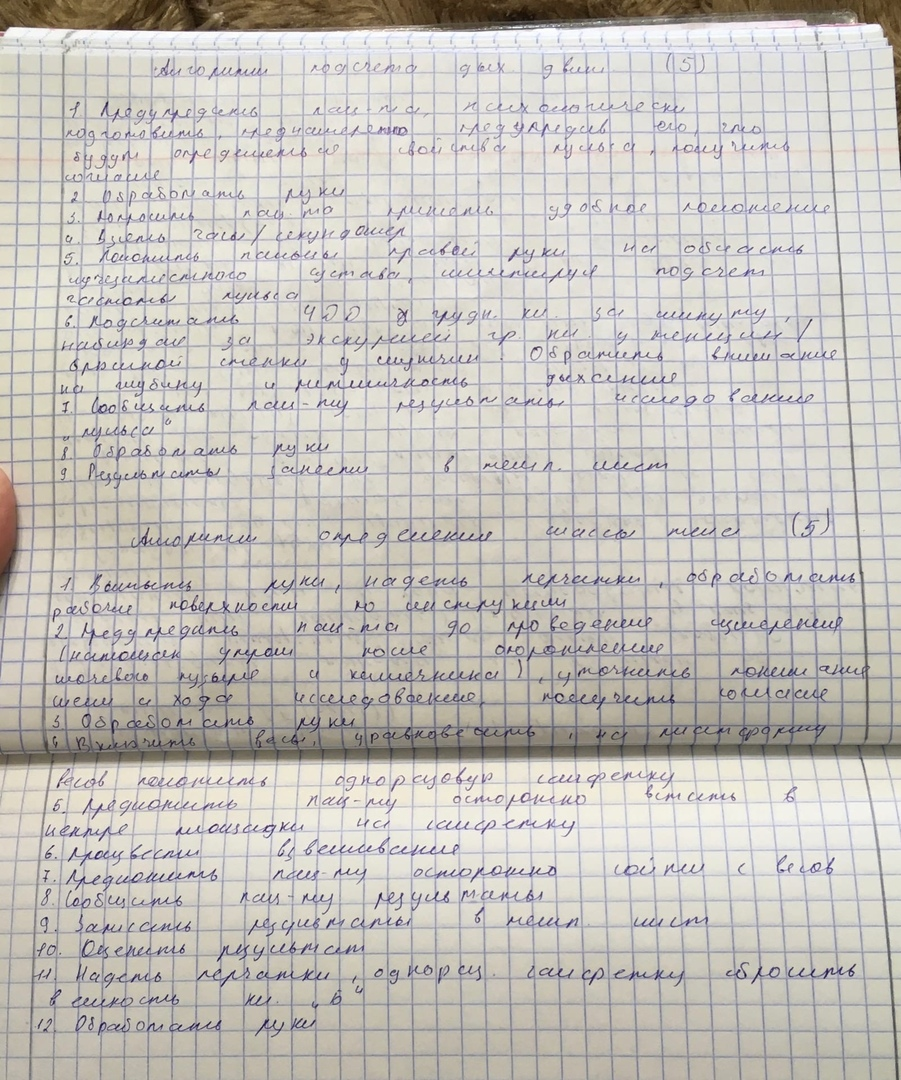 Алгоритм подсчета дых. движ (5)
1. Предупредить пац-та, психологически
подготовить, преднамеренно предупредив его, что
будут определяться свойства пульса, получить
согласие
2 Обработать руки
3. Попросить пац-та принять удобное положение
4. Взять часы/секундомер
5. Положить пальцы правой руки на область
лучезапястного сустава, имитируя подсчет
частоты пульса
6. Подсчитать ЧДД в грудн. кл. за минуту,
наблюдая за экскурсией гр. кл. у женщин/
брюшной стенки у мужчин. Обратить внимание
на глубину и ритмичность дыхания
7. Сообщить пац-ту результаты исследования
„пульса“
8. Обработать руки
9 Результаты занести в темп. лист
Алгоритм определения массы тела (5)
1 Вымыть руки, надеть перчатки, обработать
рабочие поверхности по инструкции
2. Предупредить пац-та до проведения измерения
(натощак утром после опорожнения
мочевого пузыря и кишечника), уточнить понимание
цели и хода исследования, получить согласие
3 Обработать руки
4 Включить весы, уравновесить, на платформу
весов положить одноразовую салфетку
5. Предложить пац-ту осторожно встать в
центре площадки на салфетку
6. Произвести взвешивание
7. Предложить пац-ту осторожно сойти с весов
8. Сообщить пац-ту результаты
9. Записать результаты в темп. лист
10. Оценить результат
11. Надеть перчатки, однораз. салфетку сбросить
в емкость кл. „Б“
12. Обработать руки